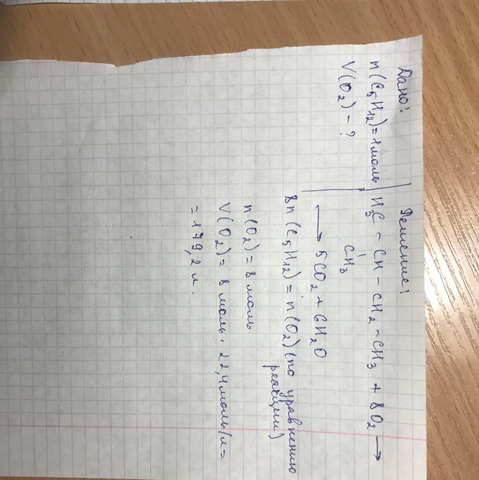 Дано:
n(C5H12)=1моль
V(O2) - ?
Решение:
H3C - CH - CH2 - CH3 + 8O2 →
CH3
→ 5CO2 + 6H2O
8n(C5H12) = n(O2) (по уравнению
реакции)
n(O2) = 8 моль
V(O2) = 8 моль · 22,4моль/л =
= 179,2 л.